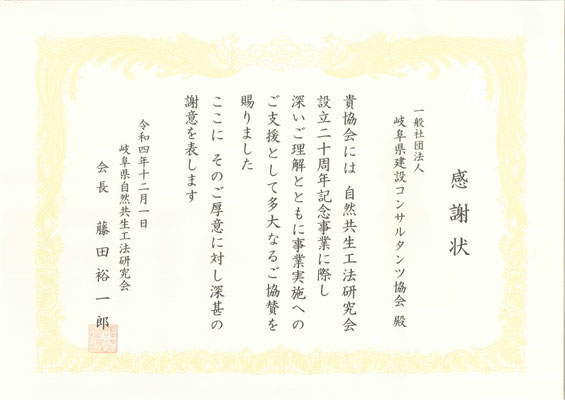 感謝状
一般社団法人
岐阜県建設コンサルタンツ協会 殿
貴協会には 自然共生工法研究会
設立二十周年記念事業に際し
深いご理解とともに事業実施への
ご支援として多大なるご協賛を
賜りました
ここに そのご厚意に対し深甚の
謝意を表します
令和四年十二月一日
岐阜県自然共生工法研究会
会長 藤田裕一郎